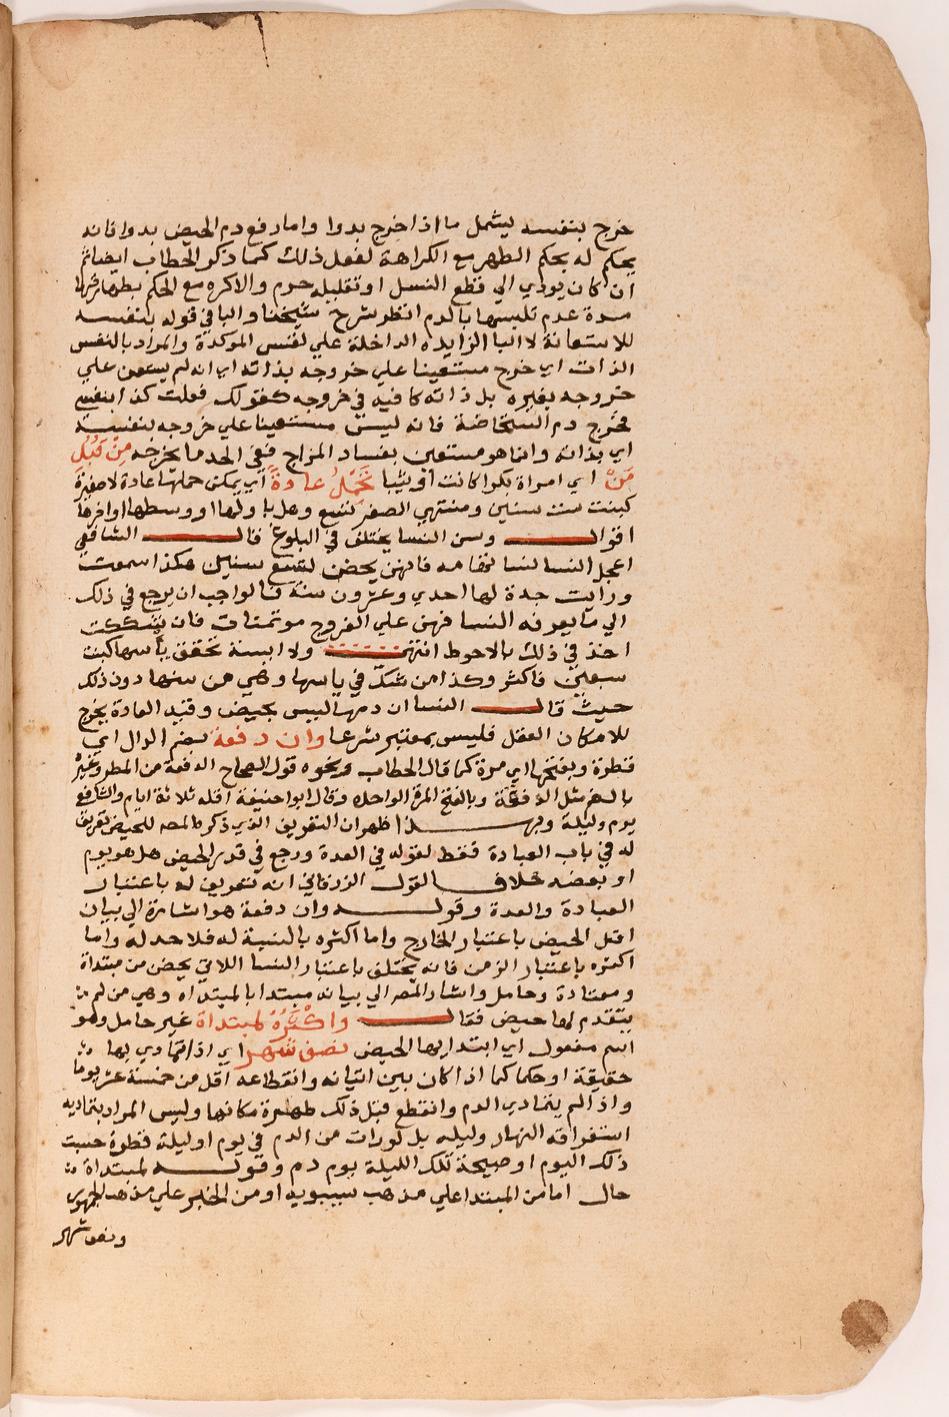 خرج بنفسه ليشمل ما اذا خرج بدوا واما رفع دم الحيض بدوا فانه
يحكم له بحكم الطهر مع الكراهة لفعل ذلك كما ذكر الحطاب ايضا ثم
ان كان يودي الي قطع النسل او تقليله حرم والا كره مع الحكم بطهارتها
مدة عدم تلبسها بالدم انظر شرح شيخنا والبا في قوله بنفسه
للاستعانة لا البا الزايده الداخلة علي لفنس الموكدة والمراد بالنفس
الذات اي خرج مستعينا علي خروجه بذاته اي انه لم يستعن علي
خروجه بغيره بل ذاته كافية في خروجه كقولك فعلت كذا بنفسي
فخرج دم الستحاضة فانه ليس مستعينا علي خروجه بنفسه
اي بذاته وانما هو مستعين بفساد المزاج فبقي الحد ما يخرجه مِنْ قُبُلِ
مَنْ اي امراة بكرا كانت او ثيبا تَحْمِلُ عادةً اي يمكن حملها عادة لا صغيرة
كبنت ست سنين ومنتهي الصغر تسع وهل باولها او وسطها او اخرها
اقوال وسن النسا يختلف في البلوغ قال الشافعي
اعجل النسا نسا تهامه فانهن يحضن لتسع سنين هكذا سمعت
ورايت جدة لها احدي وعشرون سنة فالواجب ان يرجع في ذلك
الي ما يعرفه النسا فهن علي الفروج موتمنات فان يتشككت
اخذ في ذلك بالاحوط انتهي ولا ايسة تحقق ياسها كبنت
سبعين فاكثر وكذا من شك في ياسها وهي من سنها دون ذلك
حيث قال النسا ان دمها ليس بحيض وقيد العادة يخرج
للامكان العقل فليس بمعتبر شرعا وان دفعة بضم الدال اي
قطرة وبفتحها اي مرة كما قال الحطاب ونحوه قول الصحاح الدفعة من المطر وغيره
بالضم مثل الدفقة وبالفتح المرة الواحدة وقال ابو حنيفة اقله ثلاثة ايام والشافعي
يوم وليلة وبهذا ظهر ان التعريف الذي ذكره المصه للحيض تعريف
له في باب العبادة فقط لقوله في العدة ورجع في قدر الحيض هل هو يوم
او بعضه خلاف القول الزرقاني انه تعريف له باعتبار
العبادة والعدة وقوله وان دفعة هو اشارة الي بيان
اقل الحيض باعتبار الخارج واما اكثره بالنسبة له فلا حد له واما
اكثره باعتبار الزمن فانه يختلف باعتبار النسا اللاتي يحضن من مبتداة
ومعتادة وحامل واشار المصه الي بيانه مبتدا بالمبتداه وهي من لم
يتقدم لها حيض فقال واكْثَرُهُ لمبتداة غير حامل وهو
اسم مفعول اي ابتدا بها الحيض نصف شهر اي اذا تمادي بها
حقيقة او حكما كما اذا كان بين اتيانه وانقطاعه اقل من خمسة عشر يوما
واذا لم يتمادي الدم وانقطع قبل ذلك طهرة مكانها وليس المراد بتماديه
استغراقه النهار وليله بل لو رات من الدم في يوم او ليلة قطرة حسبت
ذلك اليوم او صبيحة تلك الليلة يوم دم وقوله لمبتداة
حال اما من المبتدا علي مذهب سيبويه او من الخبر علي مذهب الجمهور
ونصف شهر